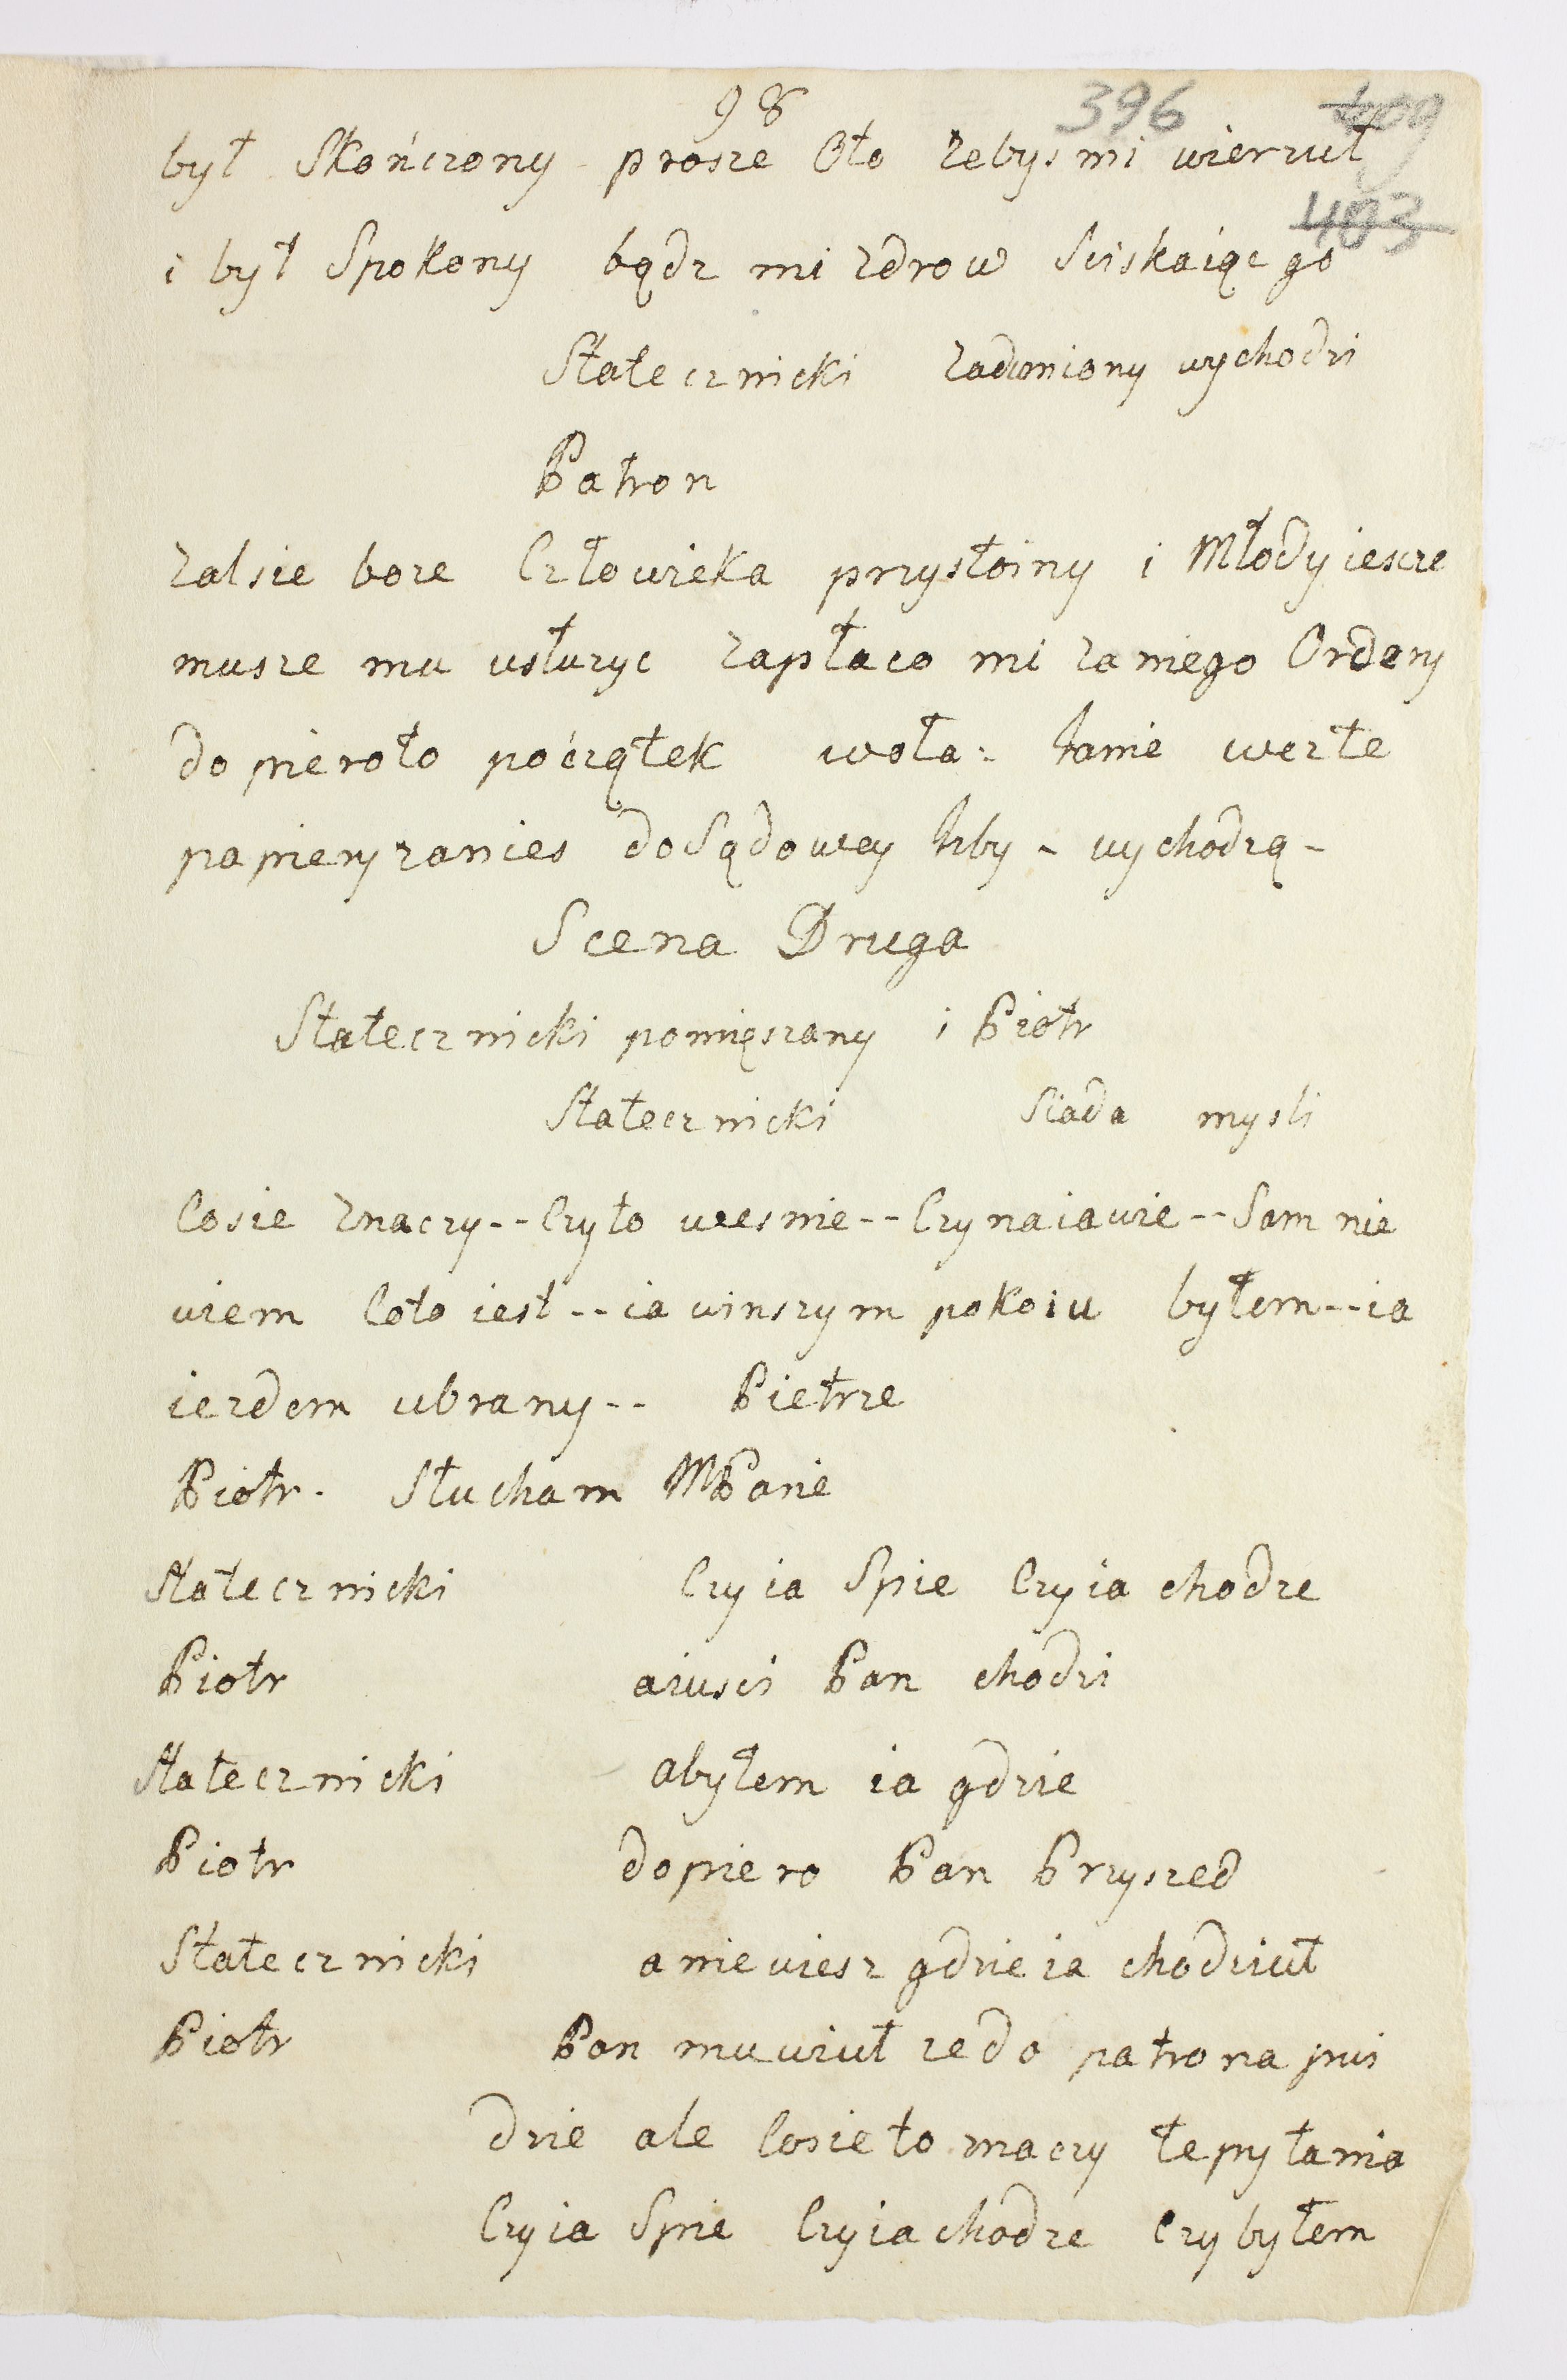 98 396 409
był Skończony prosze Oto zebys mi wierzuł
403
i był Spokony bądz mi zdrow Sciskaiąc go
Statecznicki zadumiony wychodzi
Patron
zal sie boze Człowieka przystoiny i Młody iescze
musze mu usłuzyc zapłaco mi zaniego Ordery
do pieroto początek woła: Janie wezte
papiery zanies do Sądowey Izby - wychodzą -
Scena Druga
Statecznicki pomięszany i Piotr
Statecznicki Siada mysli
Cosie znaczy -- Czyto wesnie -- Czy naiawie -- Sam nie
wiem Coto iest -- ia winszym pokoiu byłem -- ia
iezdem ubrany -- Pietrze
Piotr. Słucham MPanie
Statecznicki Czy ia Spie Czy ia chodze
Piotr aiusci Pan chodzi
Statecznicki abyłem ia gdzie
Piotr dopiero Pan Przyszed
Statecznicki a nie wiesz gdzie ia chodziuł
Piotr Pan muwiuł ze do patrona pui
dzie ale Cosie to znaczy te pytania
Czy ia Spie Czy ia chodze Czy byłem